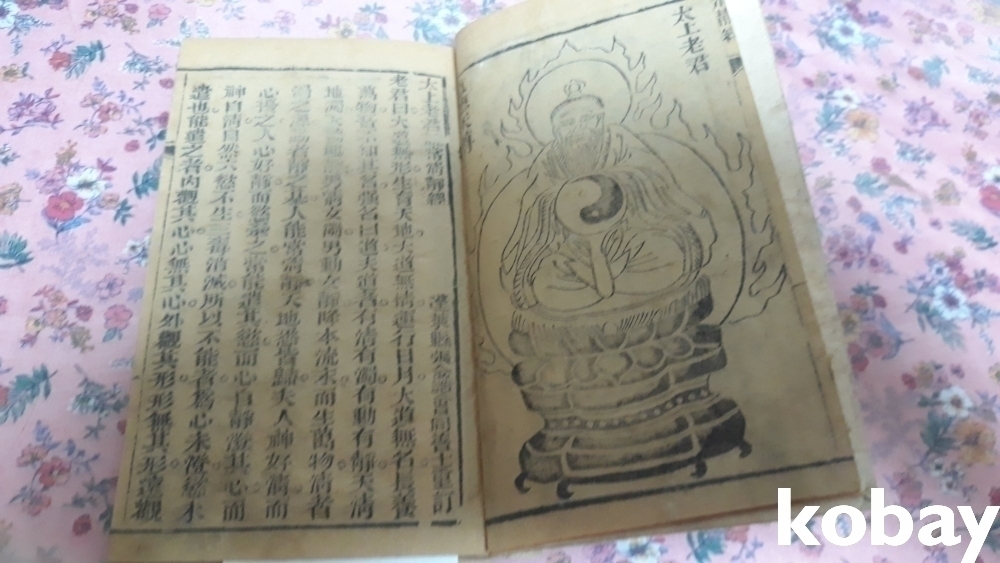 太上老君
太上老君說常清靜經
老君曰大道無形生育天地大道無情運行日月大道無名長養
萬物吾不知其名強名曰道夫道者有清有濁有動有靜天清
地濁天動地靜男清女濁男動女靜降本流末而生萬物清者
濁之源動者靜之基人能常清靜天地悉皆歸夫人神好清而
心擾之人心好靜而慾牽之常能遣其慾而心自靜澄其心而
神自清自然六慾不生三毒消滅所以不能者爲心未澄慾未
遣也能遣之者內觀其心心無其心外觀其形形無其形遠觀
kobay